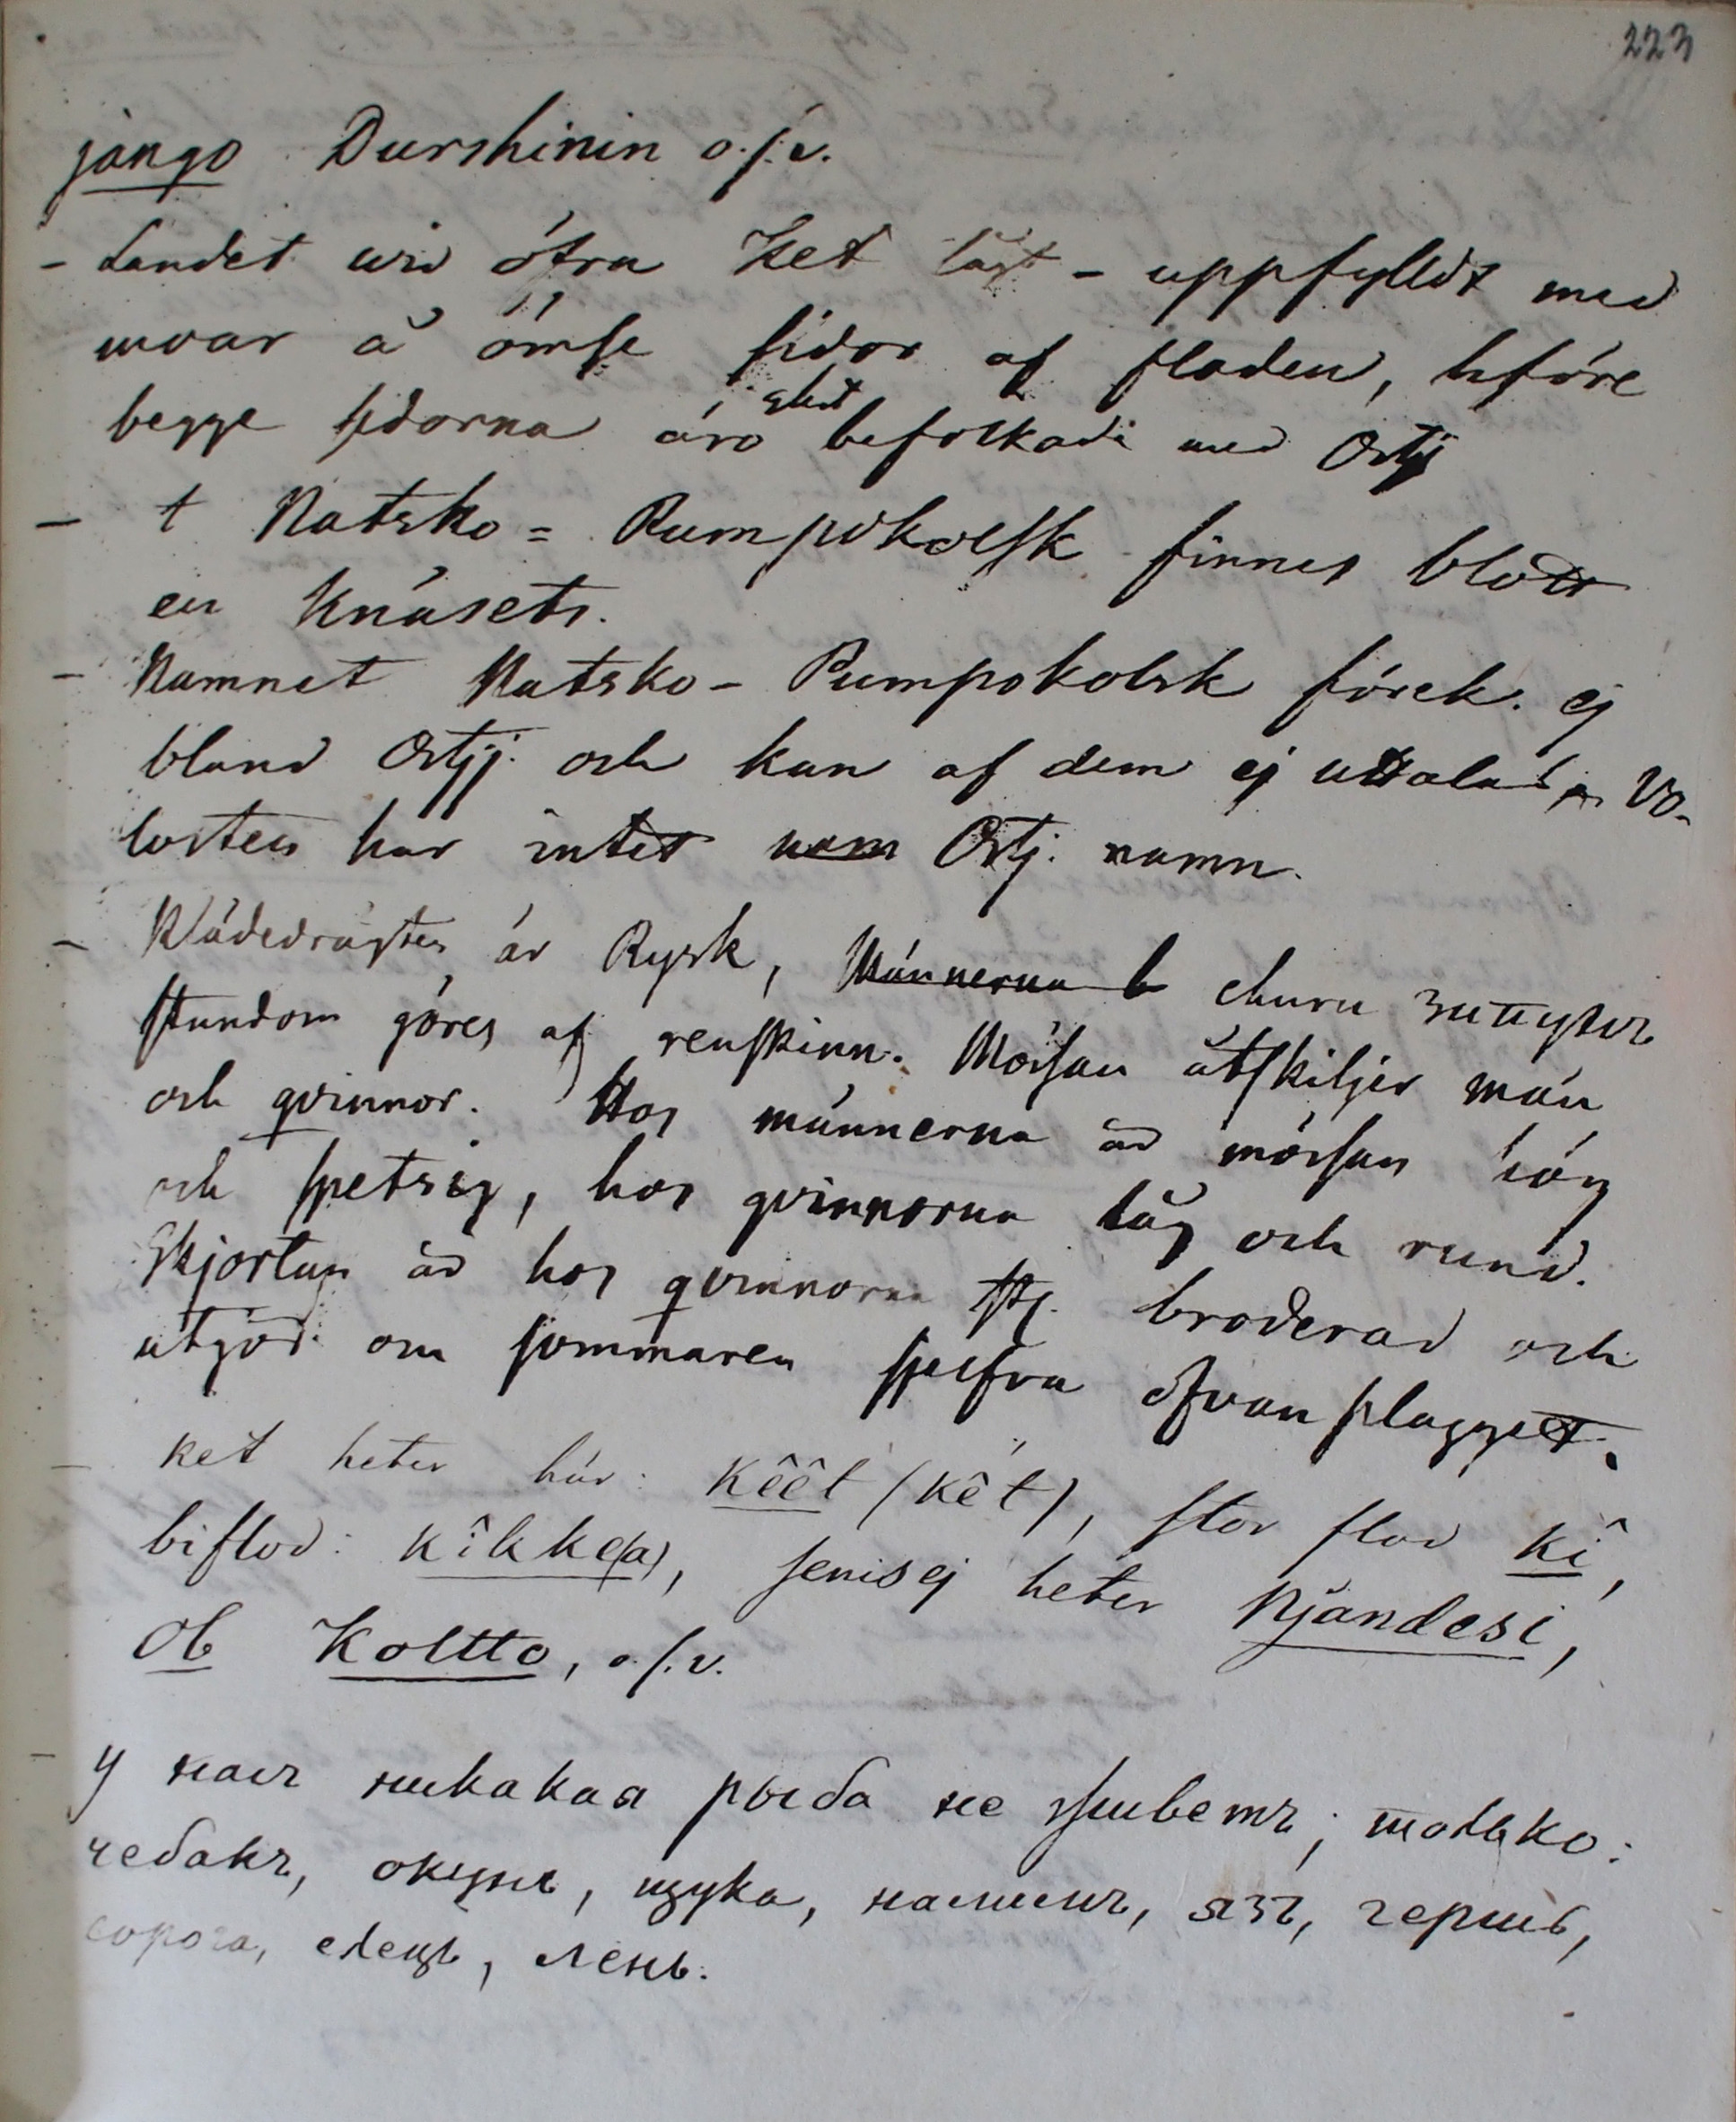 223
jango Durshinin o.s.v.
- Landet wid öfra Ket lågt - uppfylldt med
moar å ömse sidor af floden, hföre
begge sidorna äro glest befolkade med Ostj
- I Natsko = Pumpokolsk finnes blott
en Knäsets.
- Namnet Natsko - Pumpokolsk förek. ej
bland Ostjj. och kan af dem ej uttalas, Vo-
losten har intet nam Ostj. namn.
- Klädedrägten är Rysk, Männerna b churu
stundom göres af renskinn. Mössan åtskiljer män
och qvinnor. Hos männerna är mössan hög
och spetsig, hos qvinnorna låg och rund.
Skjortan är hos qvinnorna broderad och
utgör om sommaren ofvanplagget.
- Ket heter här: Kêêt (Kêt), stor flod kî,
biflod: kîkke(a), Jenisej heter Njandesi,
Ob Koltto, o.s.v.
- У насъ никакая рыба не живетъ; только:
чебакъ, окунь, щука, налимъ, язъ, гершь,
сорога, елецъ, лень.